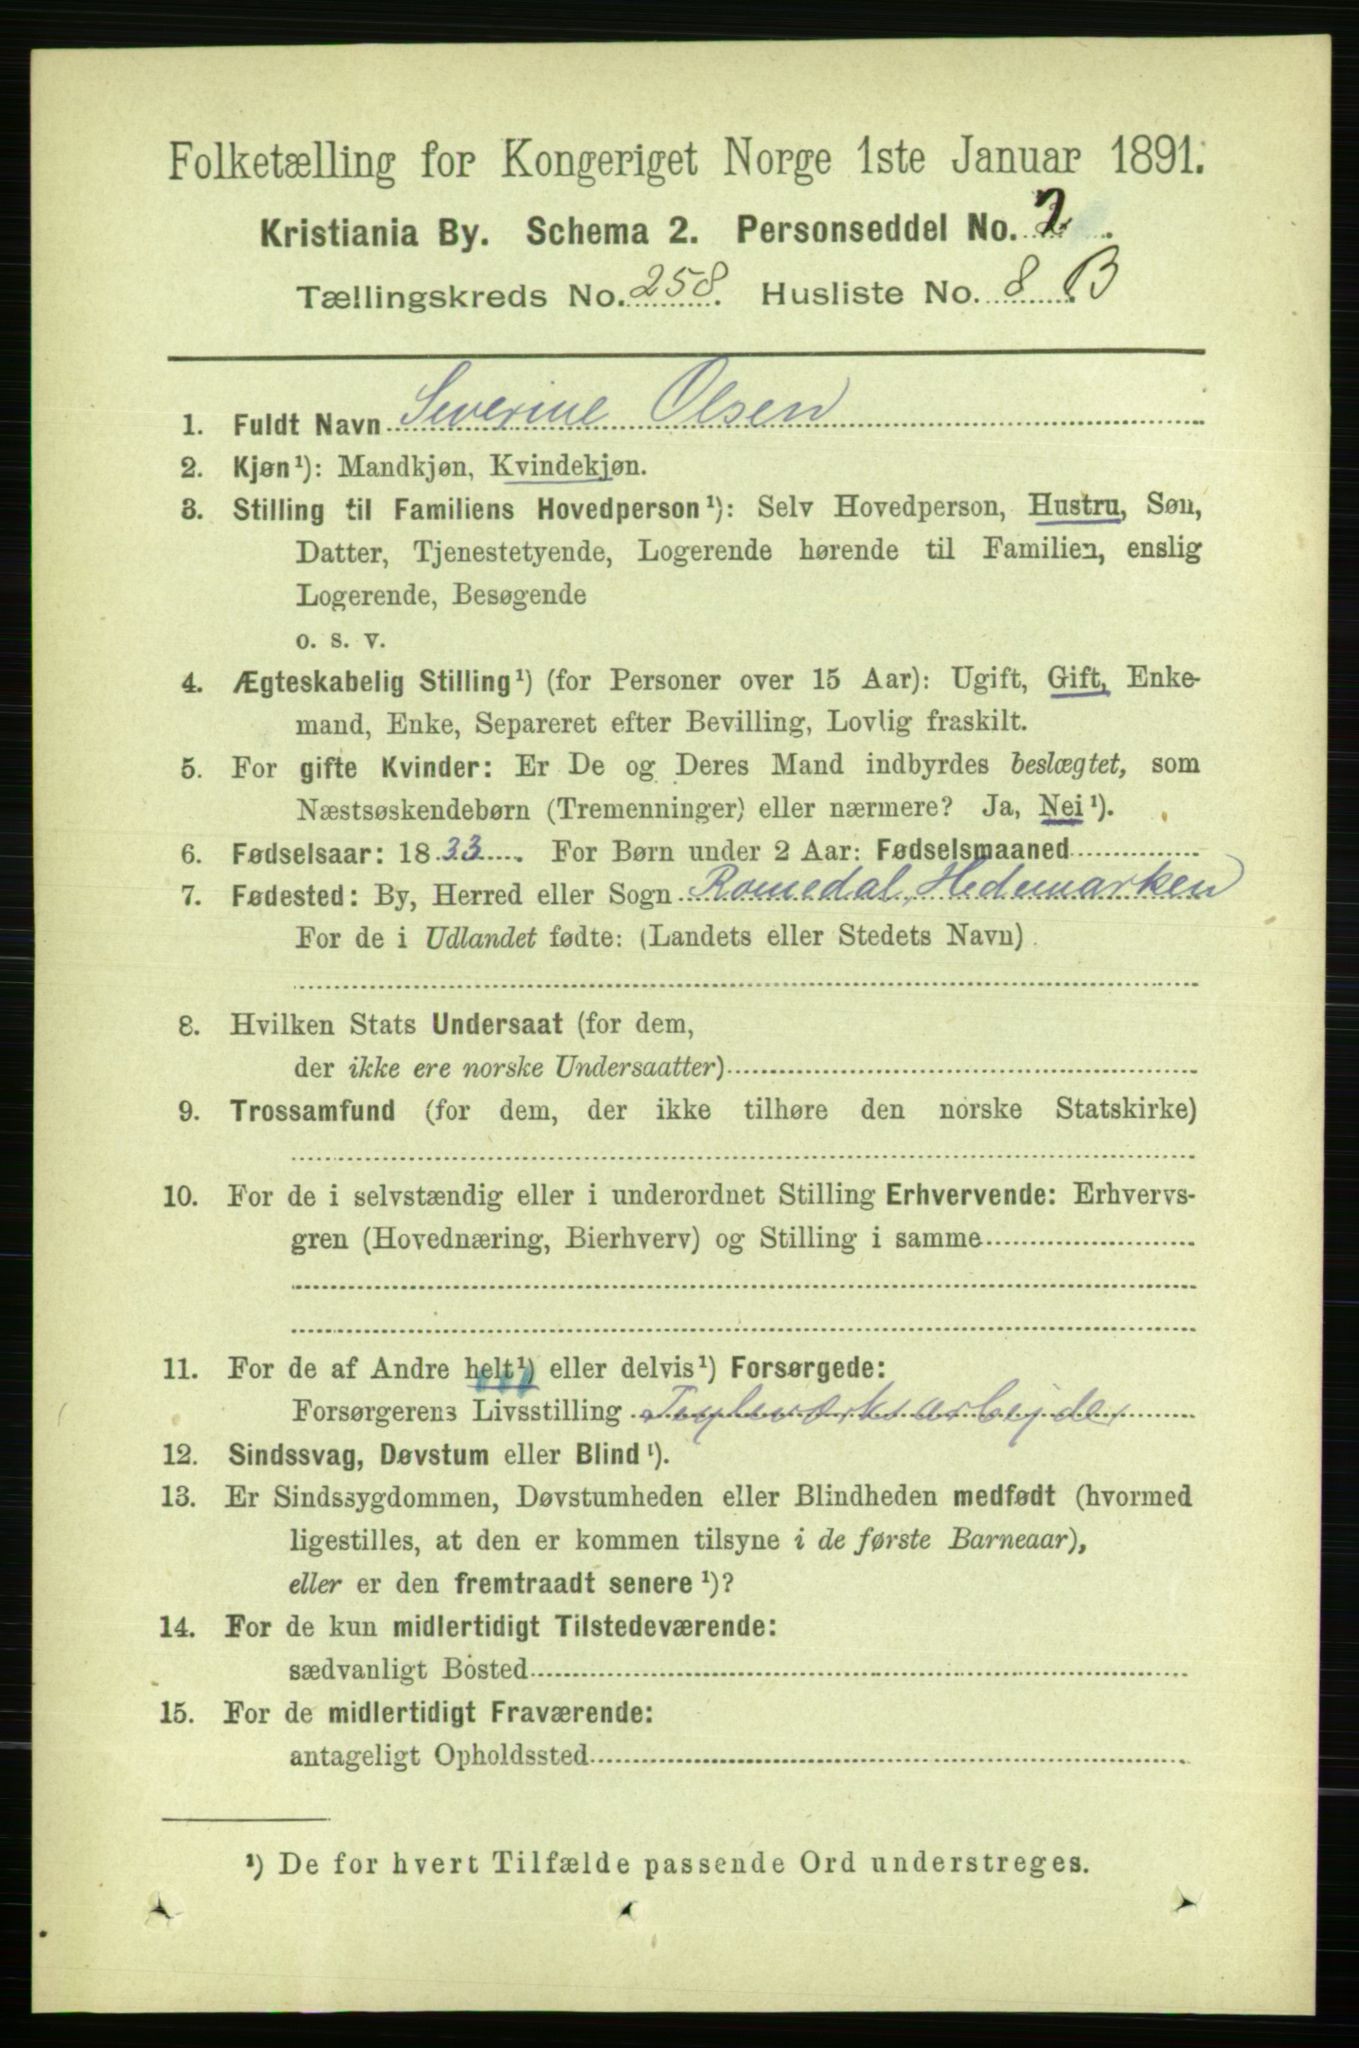 Folketælling for Kongeriget Norge 1ste Januar 1891.
Kristiania By. Schema 2. Personseddel No. 2.
Tællingskreds No. 258. Husliste No. 8 B
1. Fuldt Navn Severine Olsen
2. Kjøn¹): Mandkjøn, Kvindekjøn.
3. Stilling til Familiens Hovedperson¹): Selv Hovedperson, Hustru, Søn,
Datter, Tjenestetyende, Logerende hørende til Familien, enslig
Logerende, Besøgende
o. s. v.
4. Ægteskabelig Stilling¹) (for Personer over 15 Aar): Ugift, Gift, Enke-
mand, Enke, Separeret efter Bevilling, Lovlig fraskilt.
5. For gifte Kvinder: Er De og Deres Mand indbyrdes beslægtet, som
Næstsøskendebørn (Tremenninger) eller nærmere? Ja, Nei¹).
6. Fødselsaar: 1833. For Børn under 2 Aar: Fødselsmaaned
7. Fødested: By, Herred eller Sogn Romedal, Hedemarken
For de i Udlandet fødte: (Landets eller Stedets Navn).
8. Hvilken Stats Undersaat (for dem,
der ikke ere norske Undersaatter)
9. Trossamfund (for dem, der ikke tilhøre den norske Statskirke)
10. For de i selvstændig eller i underordnet Stilling Erhvervende: Erhvervs-
gren (Hovednæring, Bierhverv) og Stilling i samme
11. For de af Andre helt¹) eller delvis¹) Forsørgede:
Forsørgerens Livsstilling Teglværksarbejder
12. Sindssvag, Døvstum eller Blind¹).
13. Er Sindssygdommen, Døvstumheden eller Blindheden medfødt (hvormed
ligestilles, at den er kommen tilsyne i de første Barneaar),
eller er den fremtraadt senere¹)?
14. For de kun midlertidigt Tilstedeværende:
sædvanligt Bosted
15. For de midlertidigt Fraværende:
antageligt Opholdssted
¹) De for hvert Tilfælde passende Ord understreges.